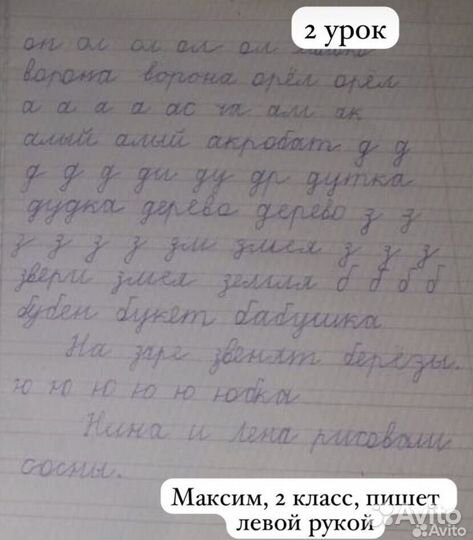 2 урок
оп ол ол ол ол
ворона ворона орёл орел
а а а а ас ча ам ак
алый алый акробат д д
д д д ди ду др дутка
дудка дерево дерево з з
з з з з зм змея з з з
звери змея земля б б б б
бубен букет бабушка
На заре звенят берёзы.
ю ю ю ю ю юбка
Нина и Лена рисовали
сосны.
Максим, 2 класс, пишет
левой рукой
Avito
Avito